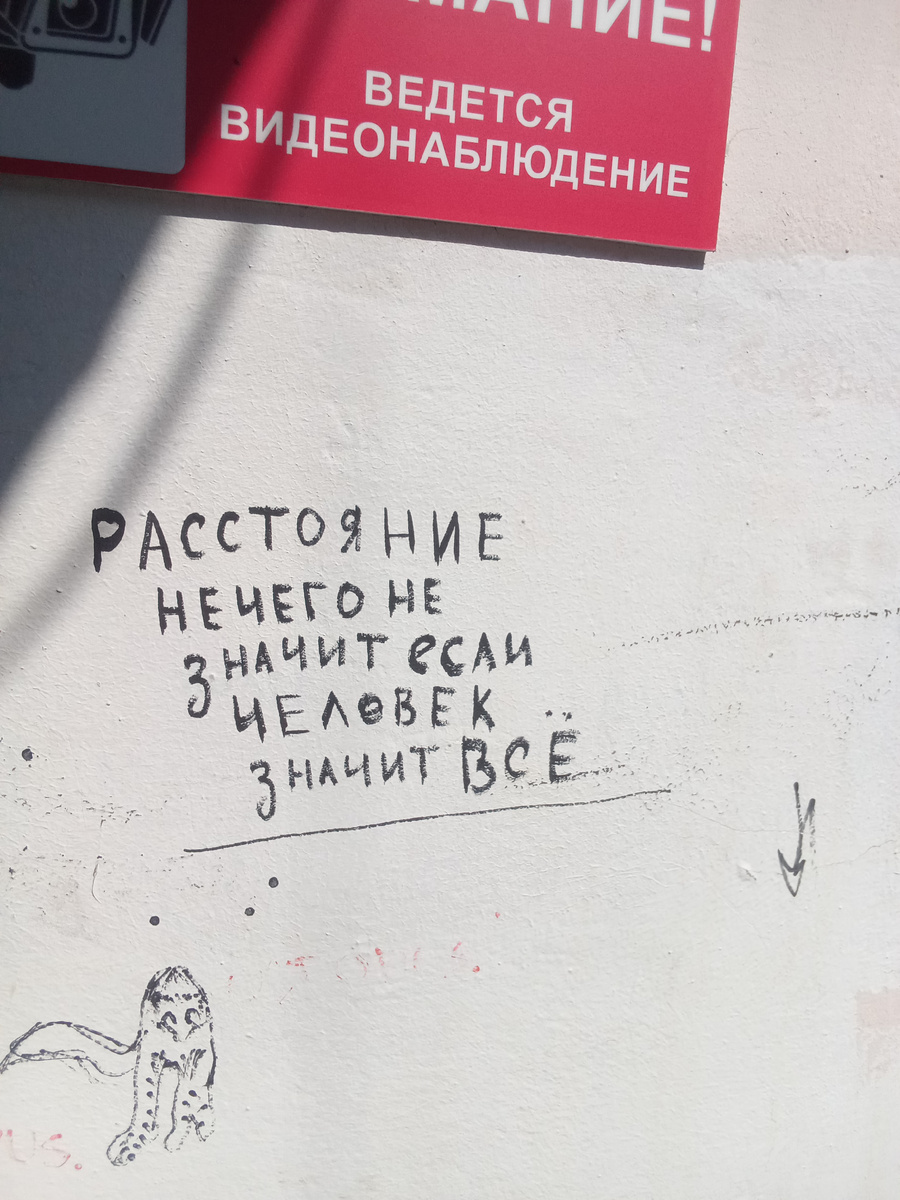 МАНИЕ!
ВЕДЕТСЯ
ВИДЕОНАБЛЮДЕНИЕ
РАССТОЯНИЕ
НЕЧЕГО НЕ
ЗНАЧИТ ЕСЛИ
ЧЕЛОВЕК
ЗНАЧИТ ВСЁ